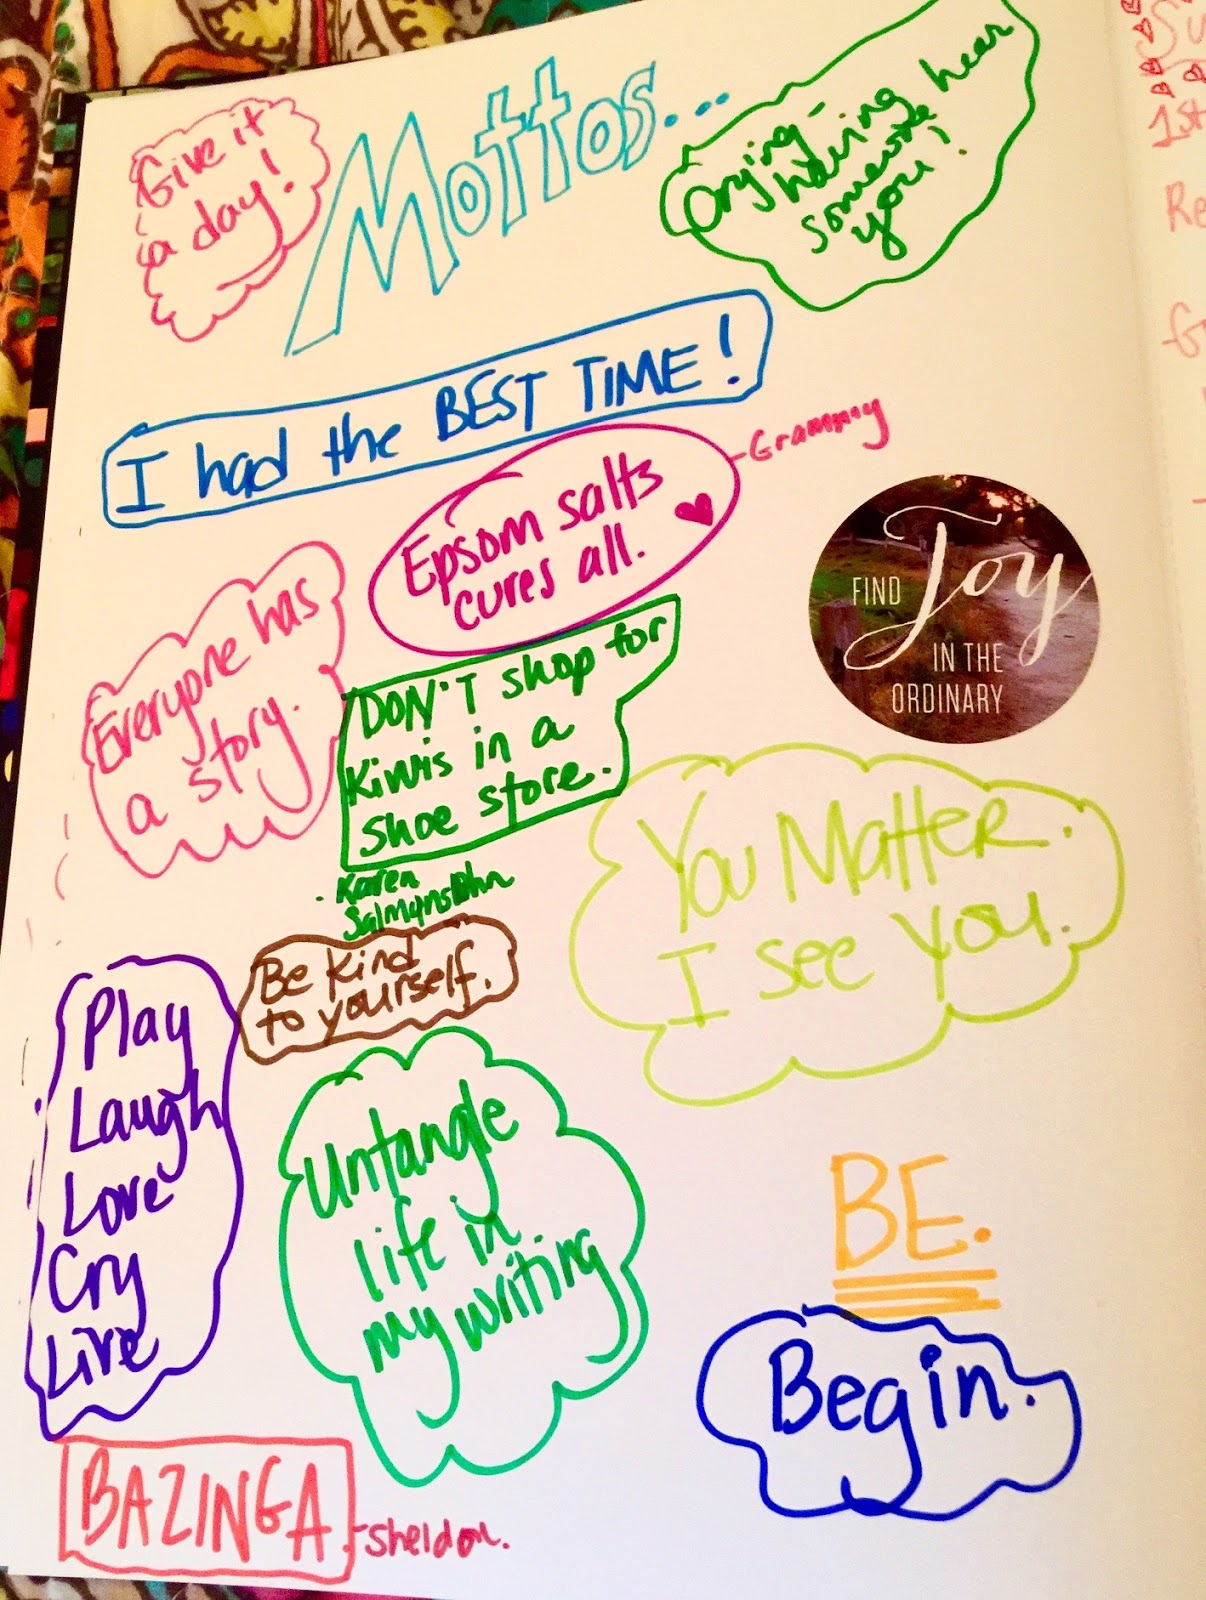 Give it
a day!
Mottos...
Crying -
having hear
somewhere
you!
I had the BEST TIME!
Epsom salts
cures all.
- Grammy
FIND Joy
IN THE
ORDINARY
Everyone has
a story.
DON'T shop for
Kiwis in a
shoe store.
- Karen
You Matter.
I see you.
Be Kind
to yourself.
Play
Laugh
Love
Cry
Live
Untangle
life in
my writing
BE.
Begin.
BAZINGA
- Sheldon.
1st
Re